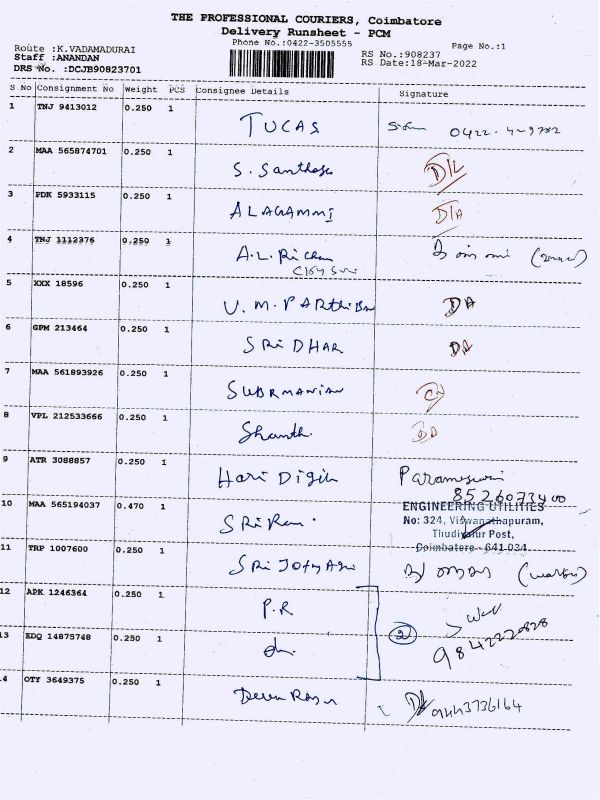 THE PROFESSIONAL COURIERS, Coimbatore
Delivery Runsheet - PCM
Phone No.:0422-3505555
Page No.:1
Route :K.VADAMADURAI
RS No.:908237
Staff :ANANDAN
RS Date:18-Mar-2022
DRS No. :DCJB90823701
S No Consignment No Weight PCS Consignee Details Signature
1 TNJ 9413012 0.250 1 TUCAS
2 MAA 565874701 0.250 1 S. Santhosh D/L
3 PDK 5933115 0.250 1 ALAGAMMI D/A
4 TNJ 1112376 0.250 1 A.L.
5 XXX 18596 0.250 1 V.M.PARthiBan DA
6 GPM 213464 0.250 1 SRiDHAR
7 MAA 561893926 0.250 1 SUBRMANIAN
8 VPL 212533666 0.250 1 Shanth.
9 ATR 3088857 0.250 1 Hari Digik Parameswari
8526073400
10 MAA 565194037 0.470 1 SRi Ram.
ENGINEERING UTILITIES
No: 324, Viswanathapuram,
Thudiyalur Post,
Coimbatore - 641 034.
11 TRP 1007600 0.250 1 SRi
12 APK 1246364 0.250 1 P.R
2
13 EDQ 14875748 0.250 1
9842220828
4 OTY 3649375 0.250 1 9443736164